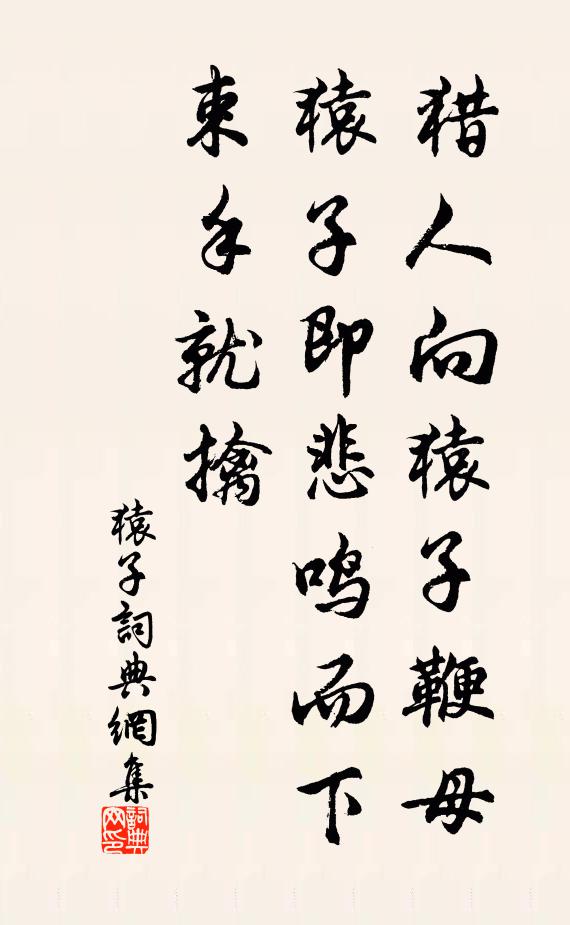 猎人向猿子鞭母
猿子即悲鸣而下
束手就擒
猿子詞典網集
詞典网印